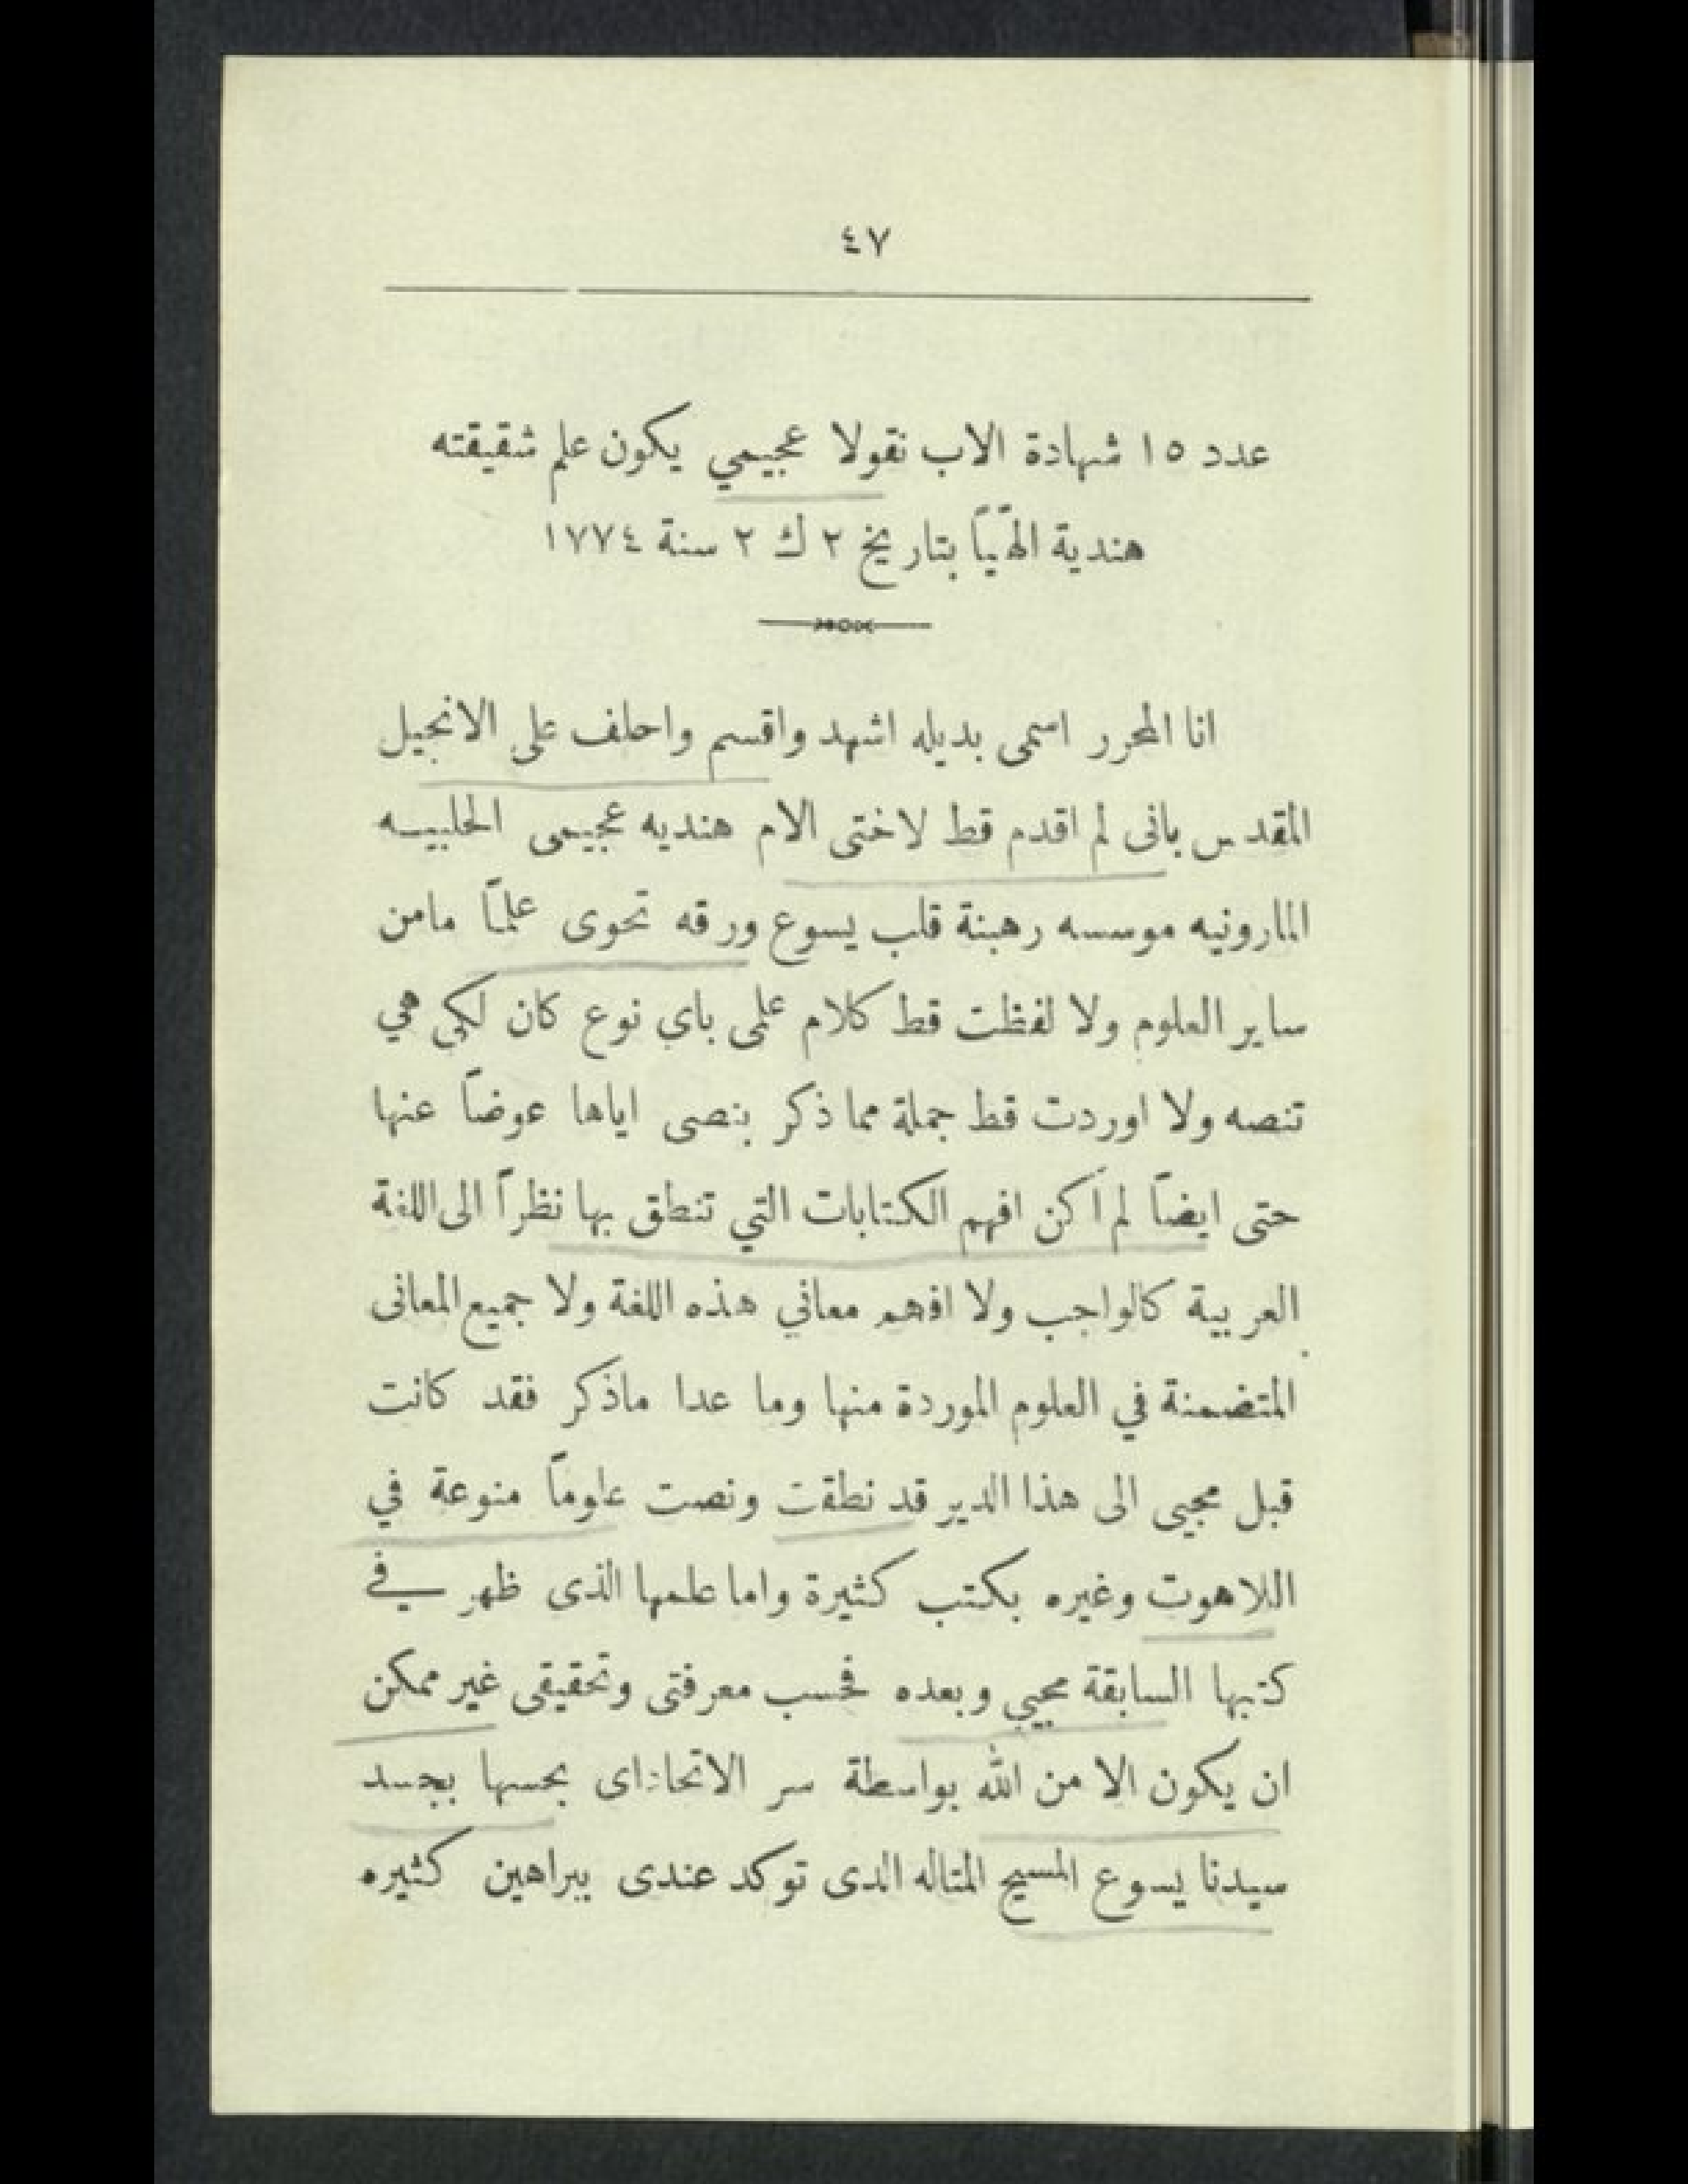 ٤٧
عدد ١٥ شهادة الاب نقولا عجيمي يكون علم شقيقته
هندية الهّيّاً بتاريخ ٢ ك ٢ سنة ١٧٧٤
انا المحرر اسمى بديله اشهد واقسم واحلف على الانجيل
المقدس بانى لم اقدم قط لاختى الام هنديه عجيمى الحلبيه
المارونيه موسسه رهبنة قلب يسوع ورقه تحوى علمًا مامن
ساير العلوم ولا لفظت قط كلام علمى باي نوع كان لكى هي
تنصه ولا اوردت قط جملة مما ذكر بنصى اياها عوضاً عنها
حتى ايضاً لم اكن افهم الكتابات التي تنطق بها نظراً الى اللغة
العربية كالواجب ولا افهم معاني هذه اللغة ولا جميع المعانى
المتضمنة في العلوم الموردة منها وما عدا ماذكر فقد كانت
قبل مجيى الى هذا الدير قد نطقت ونصت علوماً منوعة في
اللاهوت وغيره بكتب كثيرة واما علمها الذى ظهر في
كتبها السابقة مجيي وبعده فحسب معرفتى وتحقيقى غير ممكن
ان يكون الا من الله بواسطة سر الاتحاد اى بحسها بجسد
سيدنا يسوع المسيح المتاله الدى توكد عندى ببراهين كثيره